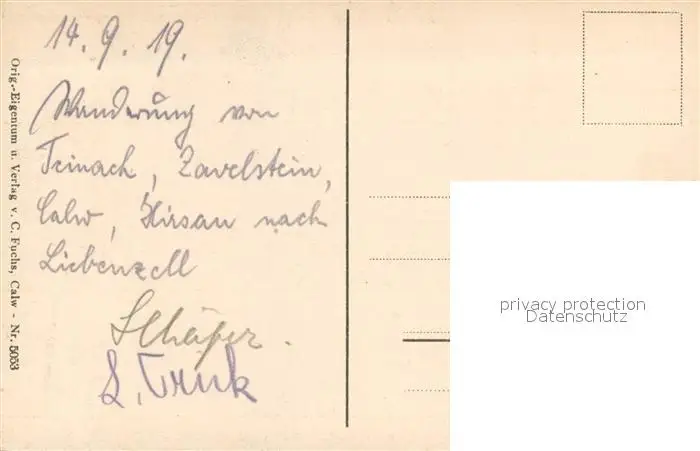 14. 9. 19.
Wanderung von
Teinach, Zavelstein,
Calw, Hirsau nach
Liebenzell
Schäfer.
Orig.-Eigentum u. Verlag v. C. Fuchs, Calw - Nr. 5053
privacy protection
Datenschutz